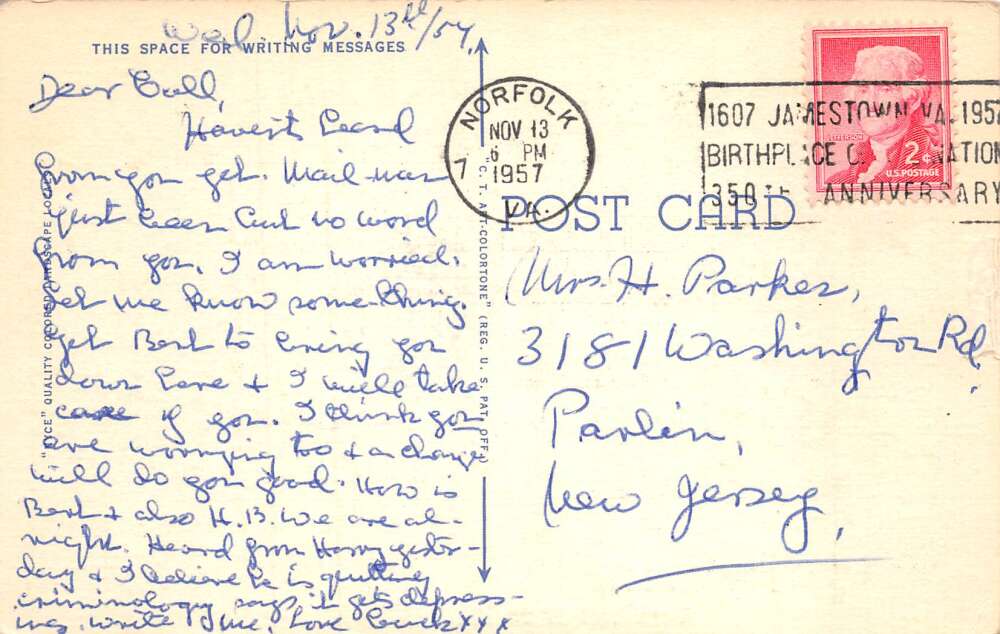 Wed. Nov. 13th/57.
THIS SPACE FOR WRITING MESSAGES
Dear
Haven't heard
from you yet. Mail man
just been but no word
from you. I am worried.
Let me know something.
Get Bert to bring you
down here & I will take
care of you. I think you
are worrying too & a change
will do you good. How is
Bert & also H.B. We are al-
right. Heard from Harry yester-
day & I believe he is quitting
criminology says it gets depress-
ing. Write me. Love xxx
QUALITY COLORED LANDSCAPE LOCALS
"C. T. ART-COLORTONE" (REG. U. S. PAT. OFF.)
NORFOLK
NOV 13
6 PM
7 1957
VA.
1607 JAMESTOWN, VA. 1957
BIRTHPLACE O NATION
350TH ANNIVERSARY
JEFFERSON
2¢
U.S. POSTAGE
POST CARD
Mrs. H. Parker,
3181 Washington Rd,
Parlin,
New Jersey,